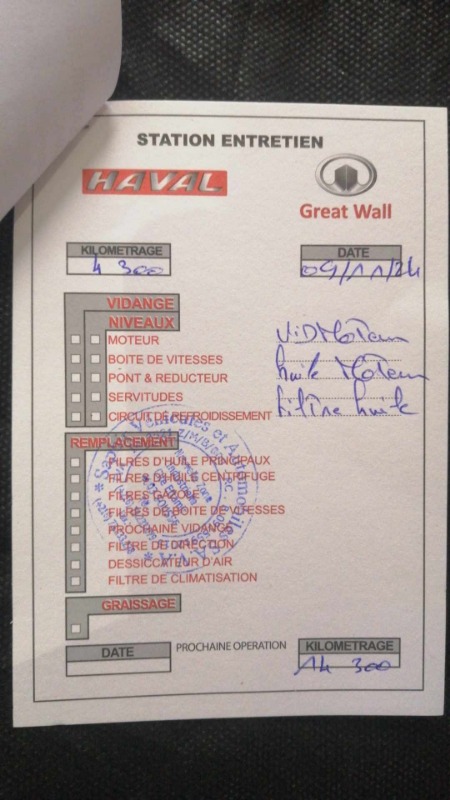 STATION ENTRETIEN
HAVAL
Great Wall
KILOMETRAGE
4 300
DATE
09/11/24
VIDANGE
NIVEAUX
MOTEUR
ViD Moteur
BOITE DE VITESSES
huile Moteur
PONT & REDUCTEUR
SERVITUDES
filtre huile
CIRCUIT DE REFROIDISSEMENT
REMPLACEMENT
FILRES D'HUILE PRINCIPAUX
FILRES D'HUILE CENTRIFUGE
FILRES GAZOLE
FILRES DE BOITE DE VITESSES
PROCHAINE VIDANGE
FILTRE DE DIRECTION
DESSICCATEUR D'AIR
FILTRE DE CLIMATISATION
GRAISSAGE
DATE
PROCHAINE OPERATION
KILOMETRAGE
14 300